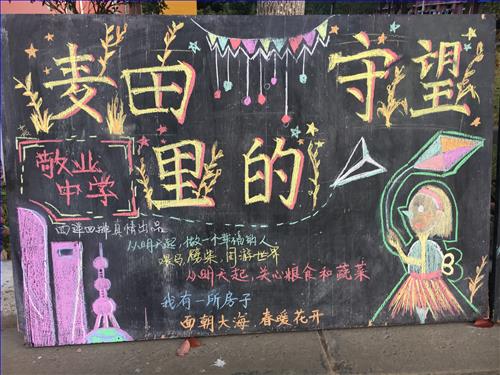 麦田 守望
里的
敬业
中学
西班四排真情出品
从明天起,做一个幸福的人
喂马,劈柴,周游世界
从明天起,关心粮食和蔬菜
我有一所房子
面朝大海 春暖花开